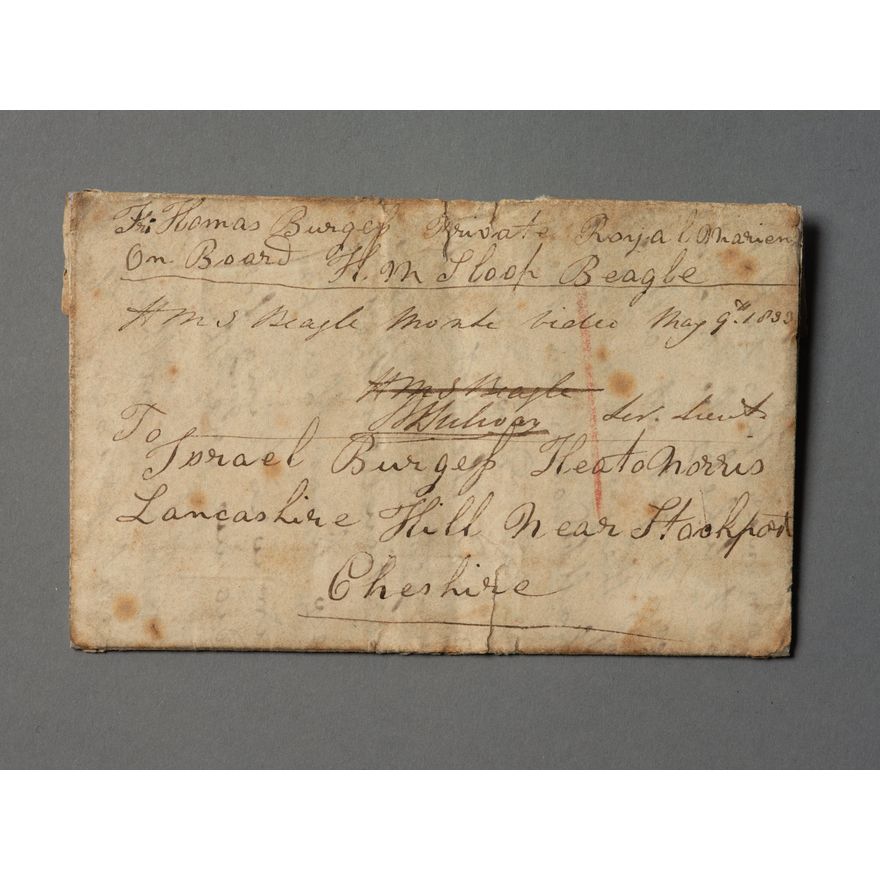 Fr: Thomas Burgess Private Royal Marien
On Board H.M Sloop Beagle
HMS Beagle Monte Video May 9th. 1833
HMS Beagle
BJSulivan Lieut
To
Israel Burgess Heato Norris
Lancashire Hill Near Stockport
Cheshire